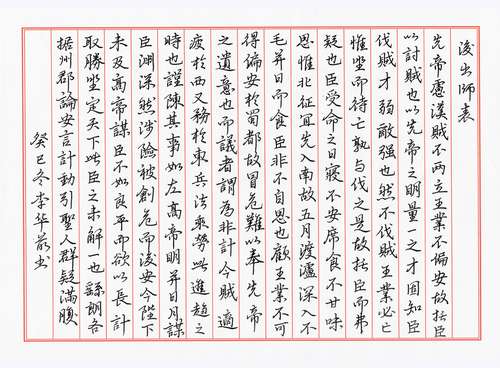 後出師表
先帝慮漢賊不兩立王業不偏安故託臣
以討賊也以先帝之明量一之才固知臣
伐賊才弱敵強也然不伐賊王業必亡
惟坐而待亡孰與伐之是故托臣而弗
疑也臣受命之日寢不安席食不甘味
思惟北征宜先入南故五月渡瀘深入不
毛并日而食臣非不自思也顧王業不可
得偏安於蜀都故冒危難以奉先帝
之遺意也而議者謂為非計今賊適
疲於西又務於東兵法乘勞此進趨之
時也謹陳其事如左高帝明并日月謀
臣淵深然涉險被創危而後安今陛下
未及高帝謀臣不如良平而欲以長計
取勝坐定天下此臣之未解一也繇朗各
据州郡論安言計動引聖人群疑滿腹
癸巳冬李华
书